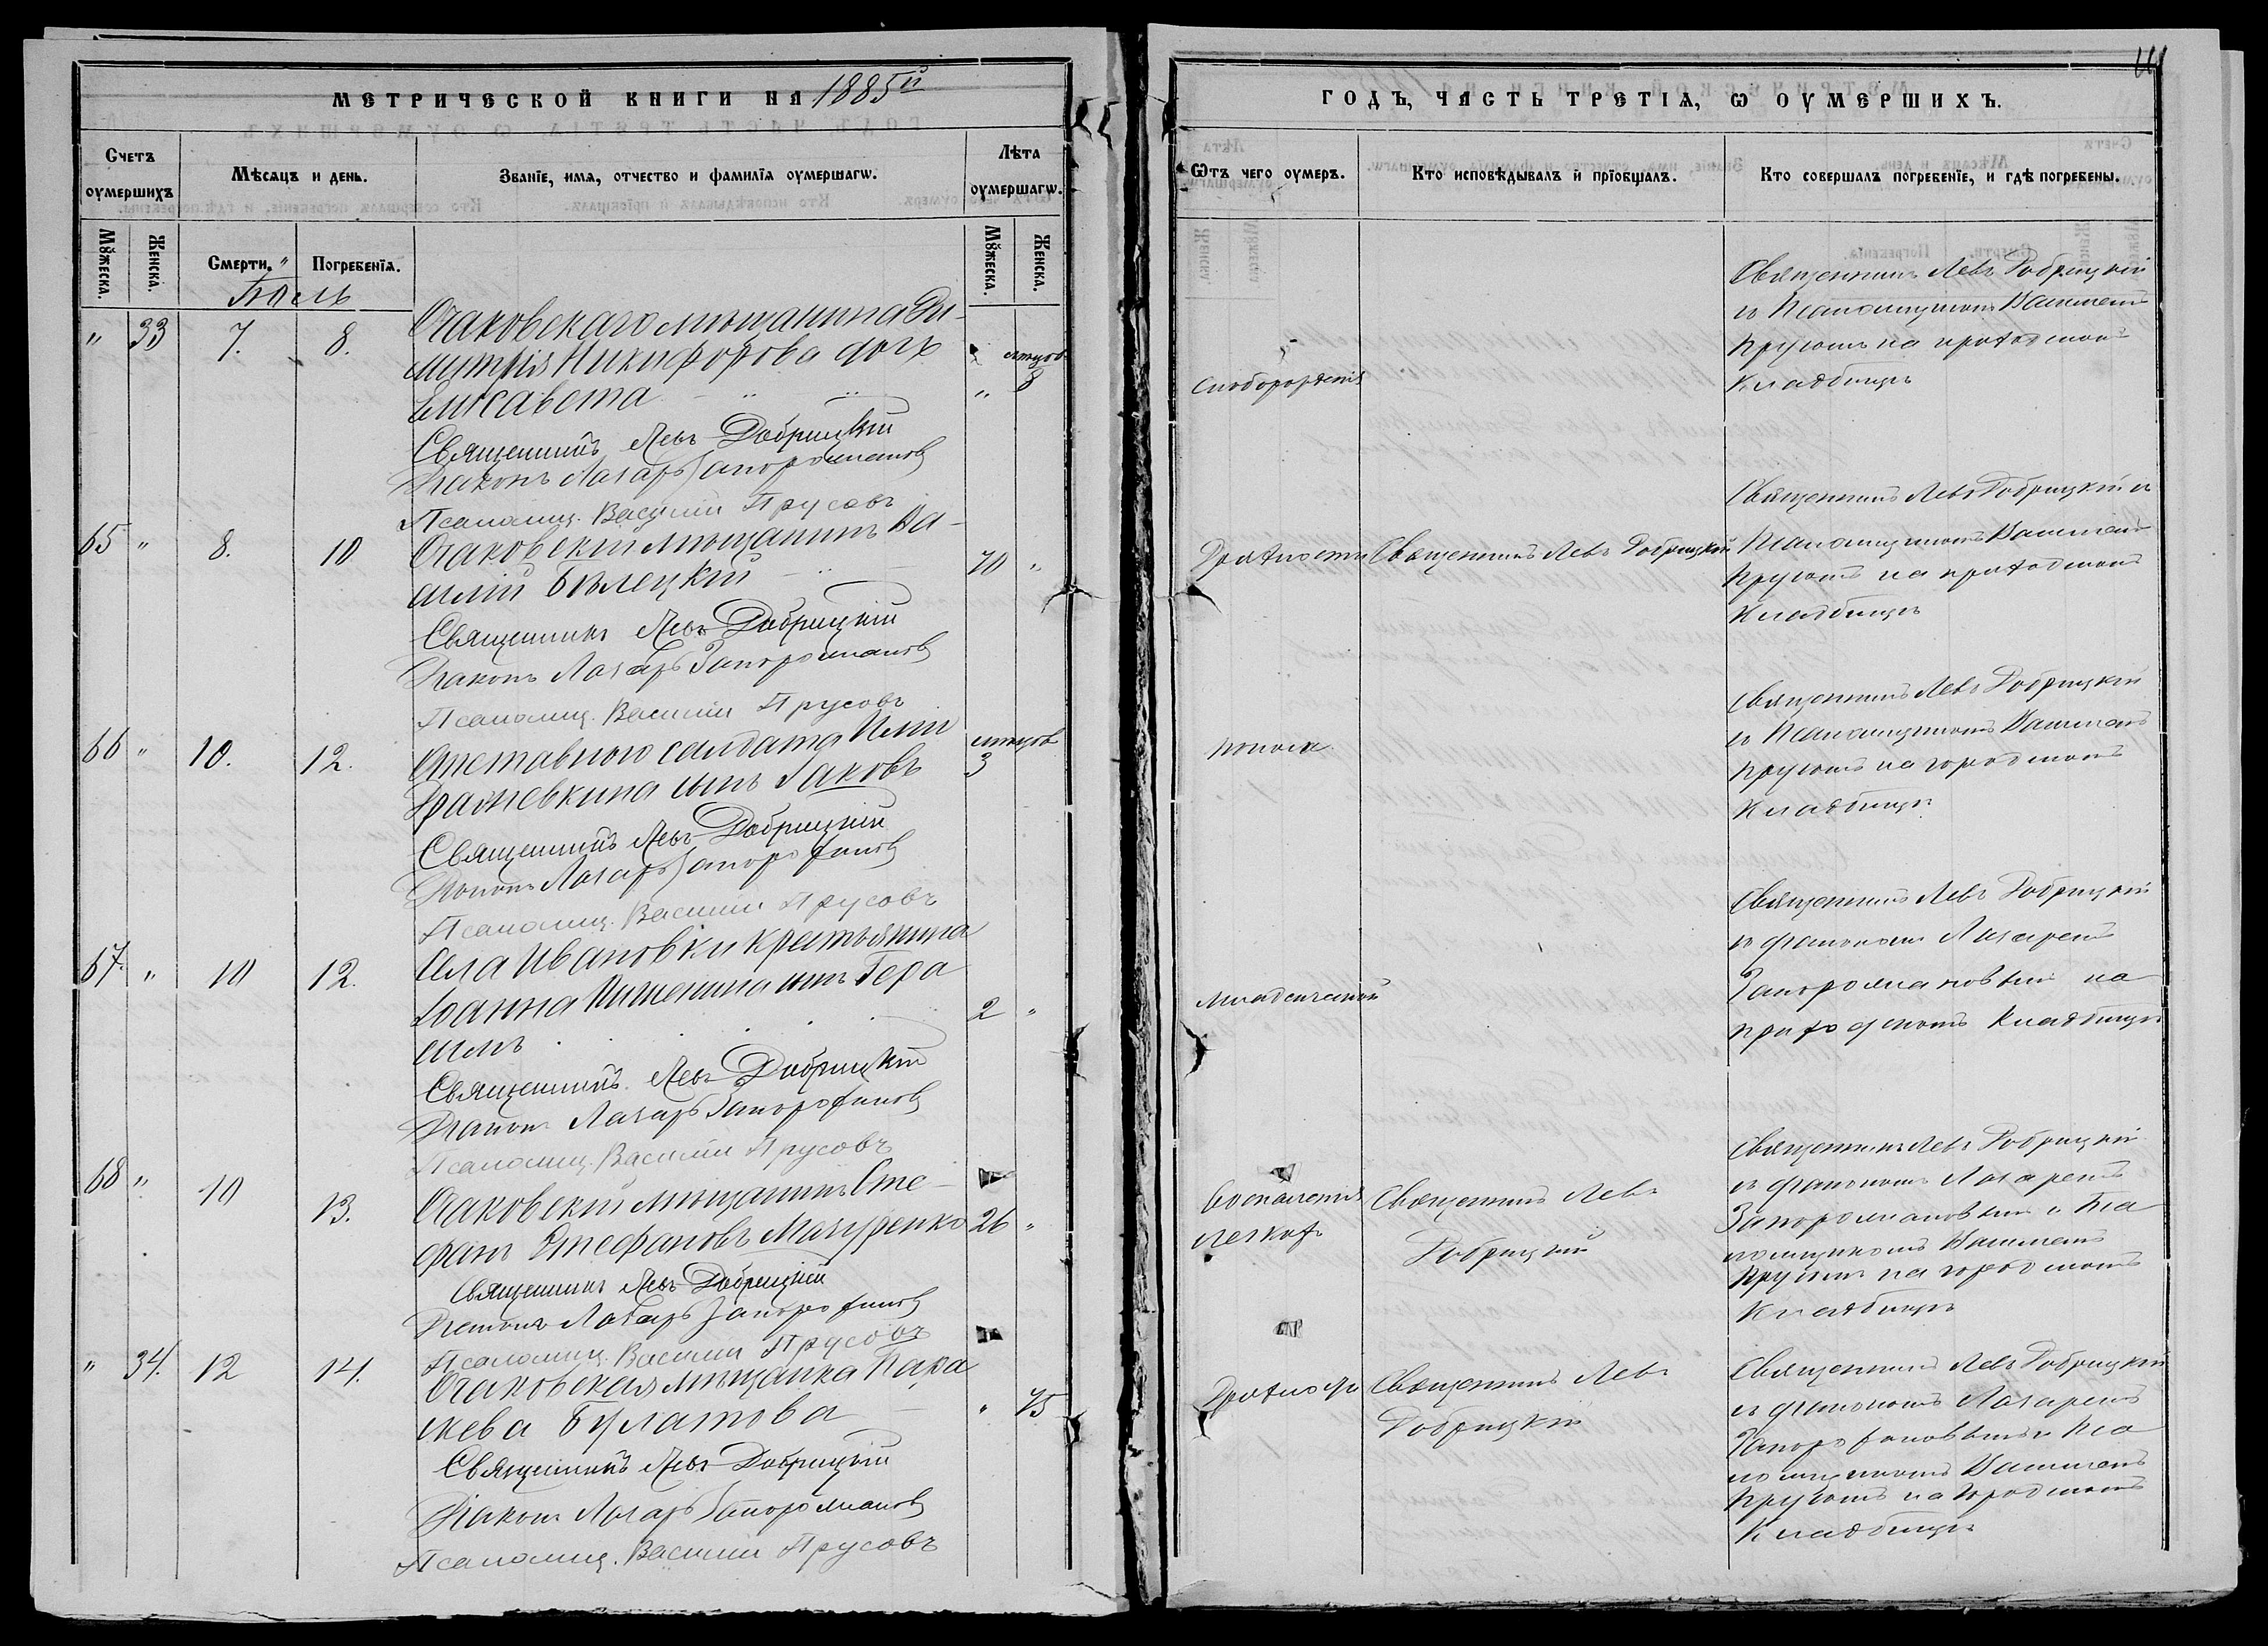 МЕТРИЧЕСКОЙ КНИГИ НА 1885й
Счетъ оумершихъ
Мѣсяцъ и день.
Званіе, имя, отчество и фамилія оумершагѡ.
Лѣта оумершагѡ.
Мꙋжеска.
Женска.
Смерти.
Погребенія.
Мꙋжеска.
Женска.
Іюль
" 33 7. 8.
Очаковскаго мѣщанина Ди-
митрія Никифорова дочь
Елисавета
мѣсцов
" 8
Священникъ Левъ Добрицкій
Діаконъ Лазарь Запорожановъ
Псаломщ. Василій Прусовъ
65 " 8. 10
Очаковскій мѣщанинъ Ва-
силій Бѣлецкій
70 "
Священникъ Левъ Добрицкій
Діаконъ Лазарь Запорожановъ
Псаломщ. Василій Прусовъ
66 " 10. 12.
Отставного солдата
сынъ Іаковъ
мѣсцов
3
Священникъ Левъ Добрицкій
Діаконъ Лазарь
Псаломщ. Василій Прусовъ
67. " 10 12.
Села Ивановки крестьянина
Іоанна сынъ Гера
симъ
2 "
Священникъ Левъ Добрицкій
Діаконъ Лазарь
Псаломщ. Василій Прусовъ
68 " 10 13.
Очаковскій мѣщанинъ Сте-
фанъ Стефановъ Мазуренко
26 "
Священникъ Левъ Добрицкій
Діаконъ Лазарь
Псаломщ. Василій Прусовъ
" 34. 12 14.
Очаковская мѣщанка Пара
скева Булатова
" 75
Священникъ Левъ Добрицкій
Діаконъ Лазарь Запорожановъ
Псаломщ. Василій Прусовъ
ГОДЪ, ЧАСТЬ ТРЕТІЯ, Ѡ ОУМЕРШИХЪ.
Ѿтъ чего оумеръ.
Кто исповѣдывалъ и пріобщалъ.
Кто совершалъ погребеніе, и гдѣ погребены.
Священникъ Левъ Добрицкій
съ Псаломщикомъ Василіемъ
Прусомъ на приходскомъ
Кладбищѣ
Дряхлости
Священникъ Левъ Добрицкій
Священникъ Левъ Добрицкій и
Псаломщикомъ Василіемъ
Прусомъ на приходскомъ
Кладбищѣ
поноса
Священникъ Левъ Добрицкій
съ Псаломщикомъ Василіемъ
Прусомъ на городскомъ
Кладбищѣ
младенческой
Священникъ Левъ Добрицкій
съ діакономъ Лазаремъ
Запорожановымъ на
приходскомъ Кладбищѣ
Воспаленія
легкихъ
Священникъ Левъ
Добрицкій
Священникъ Левъ Добрицкій
съ діакономъ Лазаремъ
Запорожановымъ и Пса
ломщикомъ Василіемъ
Прусомъ на городскомъ
Кладбищѣ
Священникъ Левъ
Добрицкій
Священникъ Левъ Добрицкій
съ діакономъ Лазаремъ
и Пса
ломщикомъ Василіемъ
Прусомъ на городскомъ
Кладбищѣ